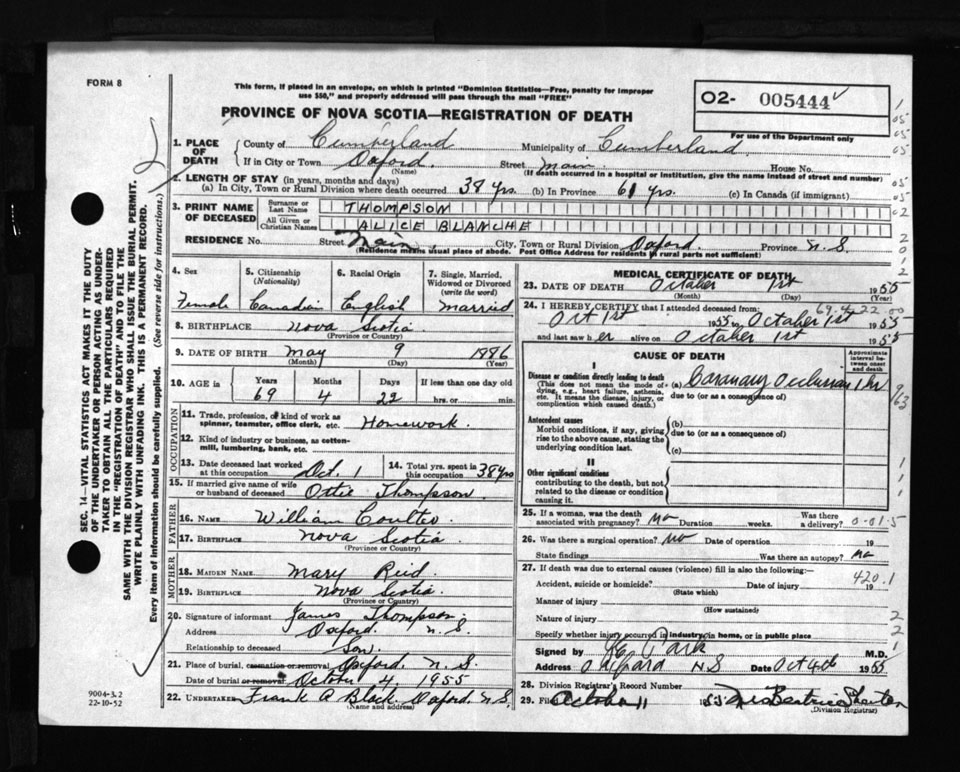 FORM 8
This form, if placed in an envelope, on which is printed "Dominion Statistics—Free, penalty for improper
use $50," and properly addressed will pass through the mail "FREE"
PROVINCE OF NOVA SCOTIA—REGISTRATION OF DEATH
O2- 005444
For use of the Department only
1. PLACE OF DEATH
County of Cumberland Municipality of Cumberland
If in City or Town Oxford Street Main House No.
(Name) (If death occurred in a hospital or institution, give the name instead of street and number)
2. LENGTH OF STAY (in years, months and days)
(a) In City, Town or Rural Division where death occurred 38 yrs. (b) In Province 61 yrs. (c) In Canada (if immigrant)
3. PRINT NAME OF DECEASED
Surname or Last Name THOMPSON
All Given or Christian Names ALICE BLANCHE
RESIDENCE No. Street Main City, Town or Rural Division Oxford. Province N.S.
(Residence means usual place of abode. Post Office Address for residents in rural parts not sufficient)
4. Sex Female
5. Citizenship (Nationality) Canadian
6. Racial Origin English
7. Single, Married, Widowed or Divorced (write the word) Married
8. BIRTHPLACE Nova Scotia
(Province or Country)
9. DATE OF BIRTH May 9 1886
(Month) (Day) (Year)
10. AGE in Years Months Days If less than one day old
69 4 22 hrs. or min.
OCCUPATION
11. Trade, profession, or kind of work as spinner, teamster, office clerk, etc. Homework.
12. Kind of industry or business, as cotton-mill, lumbering, bank, etc.
13. Date deceased last worked at this occupation Oct. 1
14. Total yrs. spent in this occupation 38 yrs
15. If married give name of wife or husband of deceased Ottie Thompson
FATHER
16. NAME William Coulter
17. BIRTHPLACE Nova Scotia
(Province or Country)
MOTHER
18. MAIDEN NAME Mary Reid
19. BIRTHPLACE Nova Scotia
(Province or Country)
20. Signature of informant James Thompson
Address Oxford. N.S.
Relationship to deceased Son.
21. Place of burial, cremation or removal Oxford. N.S.
Date of burial or removal October 4, 1955
22. UNDERTAKER Frank A Black Oxford. N.S.
(Name and address)
MEDICAL CERTIFICATE OF DEATH
23. DATE OF DEATH October 1st 1955
(Month) (Day) (Year)
69.4.22.00
24. I HEREBY CERTIFY that I attended deceased from:
Oct 1st 1955 to October 1st 1955
and last saw her alive on October 1st 1955
CAUSE OF DEATH
Approximate interval between onset and death
I
Disease or condition directly leading to death
(This does not mean the mode of dying, e.g., heart failure, asthenia, etc. It means the disease, injury, or complication which caused death.)
(a) Coronary Occlusion 1 hr
due to (or as a consequence of)
Antecedent causes
Morbid conditions, if any, giving rise to the above cause, stating the underlying condition last.
(b)
due to (or as a consequence of)
(c)
II
Other significant conditions
contributing to the death, but not related to the disease or condition causing it.
25. If a woman, was the death associated with pregnancy? No Duration weeks. Was there a delivery? 0-01-5
26. Was there a surgical operation? No Date of operation 19
State findings Was there an autopsy? No
27. If death was due to external causes (violence) fill in also the following:—
420.1
Accident, suicide or homicide? Date of injury 19
(State which)
Manner of injury
(How sustained)
Nature of injury
Specify whether injury occurred in industry, in home, or in public place
Signed by Park M.D.
Address Oxford N.S. Date Oct 4th 1955
28. Division Registrar's Record Number
29. Filed October 11 1955 Mrs Beatrice
(Division Registrar)
SEC. 14—VITAL STATISTICS ACT MAKES IT THE DUTY
OF THE UNDERTAKER OR PERSON ACTING AS UNDER-
TAKER TO OBTAIN ALL THE PARTICULARS REQUIRED
IN THE "REGISTRATION OF DEATH" AND TO FILE THE
SAME WITH THE DIVISION REGISTRAR WHO SHALL ISSUE THE BURIAL PERMIT.
WRITE PLAINLY WITH UNFADING INK. THIS IS A PERMANENT RECORD.
Every item of Information should be carefully supplied. (See reverse side for instructions.)
9004-5.2
22-10-52